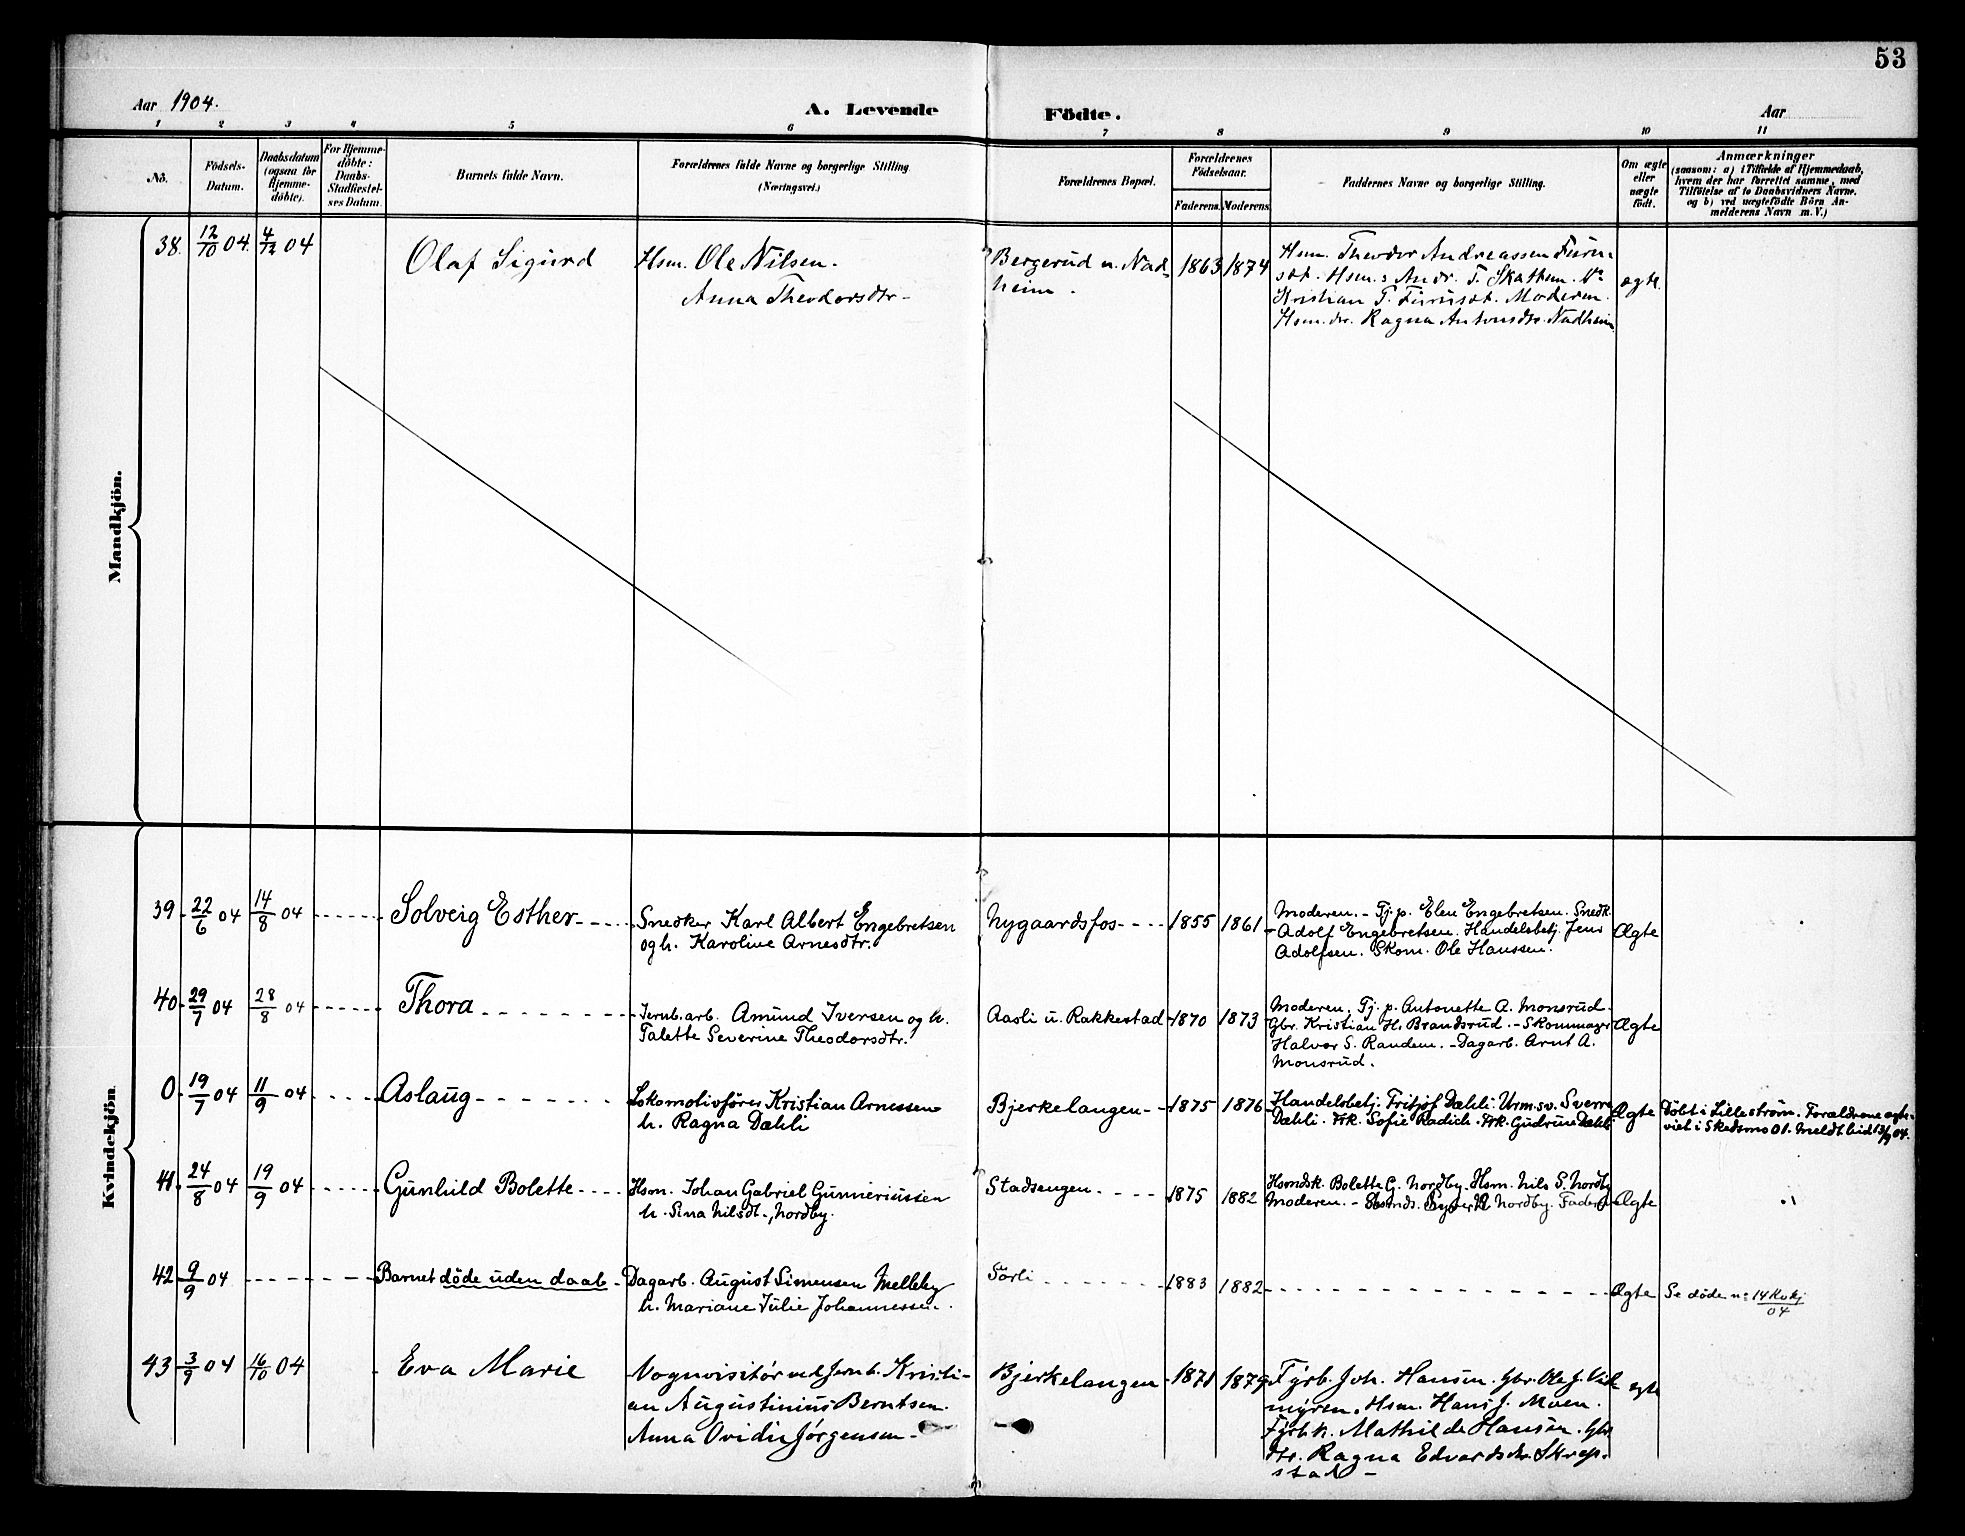 53
Aar 1904.
A. Levende Födte.
Aar
1 2 3 4 5 6 7 8 9 10 11
No.
Födsels-Datum.
Daabsdatum (ogsaa for Hjemmedöbte).
For Hjemmedöbte: Daabs-Stadfæstelses Datum.
Barnets fulde Navn.
Forældrenes fulde Navne og borgerlige Stilling (Næringsvei.)
Forældrenes Bopæl.
Forældrenes Födselsaar.
Faderens. Moderens.
Faddernes Navne og borgerlige Stilling.
Om ægte eller uægte födt.
Anmærkninger
(saasom: a) i Tilfælde af Hjemmedaab, hvem der har forrettet samme, med Tilföielse af to Daabsvidners Navne, og b) ved uægtefödte Börn Anmelderens Navn m. V.)
Mandkjön.
38. 12/10 04. 4/12 04 Olaf Sigurd
Hsm. Ole Nilsen.
Anna Theodorsdtr-
Bergerud u. Nadheim.
1863 1874
Hsm. Theodor Andreassen Furu-
set. Hsm.s Andr. T. Skathem.
Kristian T. Furuset. Moderen.
Hsm.dtr. Ragna Antonsdtr. Nadheim
ægte.
Kvindekjön
39 22/6 04 14/8 04 Solveig Esther
Snedker Karl Albert Engebretsen
og h. Karoline Arnesdtr.
Nygaardsfos
1855 1861
Moderen. - Tj. p. Elen Engebretsen. Snedk.
Adolf Engebretsen. Handelsbetj. Jens
Adolfsen. Skom. Ole Hanssen.
Ægte
40 29/7 04 28/8 04 Thora
Jernb.arb. Amund Iversen og h.
Talette Severine Theodorsdtr.
Aasli u. Rakkestad
1870 1873
Moderen. Tj. p. Antonette A. Monsrud.
Gbr. Kristian H. Brandsrud. - Skommager
Halvor S. Randem. - Dagarb. Arnt A.
Monsrud.
Ægte
0 19/7 04 11/9 04 Aslaug
Lokomotivfører Kristian Arnessen
h. Ragna Dæhli
Bjerkelangen
1875 1876
Handelsbetj. Fritjof Dæhli. Urm.sv. Sverre
Dæhli. Frk. Sofie Radich. Frk. Gudrun Dæhli
Ægte
Døbt i Lillestrøm. Forældrene ægte-
viet i Skedsmo 01. Meldt hid 13/9 04.
41. 24/8 04 19/9 04 Gunhild Bolette
Hsm. Johan Gabriel Gunneriussen
h. Sina Nilsdt., Nordby.
Stadsengen
1875 1882
Hsmdsk. Bolette G. Nordby. Hsm. Nils S. Nordby
Moderen. - Nordby. Faderen
Ægte
42 9/9 04 Barnet døde uden daab
Dagarb. August Simensen Melleby
h. Mariane Julie Johannessen.
Sørli
1883 1882
Ægte
Se døde no 14 Kvkj/04
43 3/9 04 16/10 04 Eva Marie
Vognvisitør ved Jernb. Kristi-
an Augustinius Berntsen.
Anna Ovidie Jørgensen
Bjerkelangen
1871 1879
Fyrb. Joh. Hansen. Gbr. Ole J.
myren. Hsm. Hans J. Moen.
Fyrb.k. Mathilde Hansen. Gbr
dtr. Ragna Edvardsdtr. Skrep-
stad -
ægte